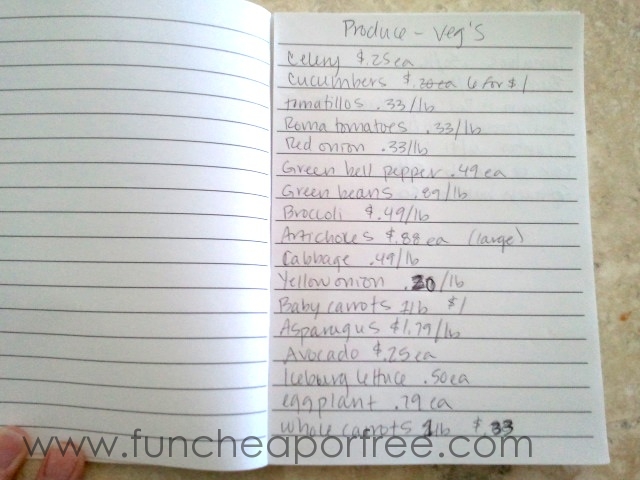 Produce - Veg's
Celery $.25 ea
Cucumbers $.20 ea 6 for $1
tomatillos .33/lb
Roma tomatoes .33/lb
Red onion .33/lb
Green bell pepper .49 ea
Green beans .89/lb
Broccoli $.49/lb
Artichokes $.88 ea (large)
Cabbage .49/lb
Yellow onion .20/lb
Baby carrots 1lb $1
Asparagus $1.79/lb
Avocado $.25 ea
Iceburg lettuce .50 ea
eggplant .79 ea
whole carrots 1lb $.33
www.funcheaporfree.com